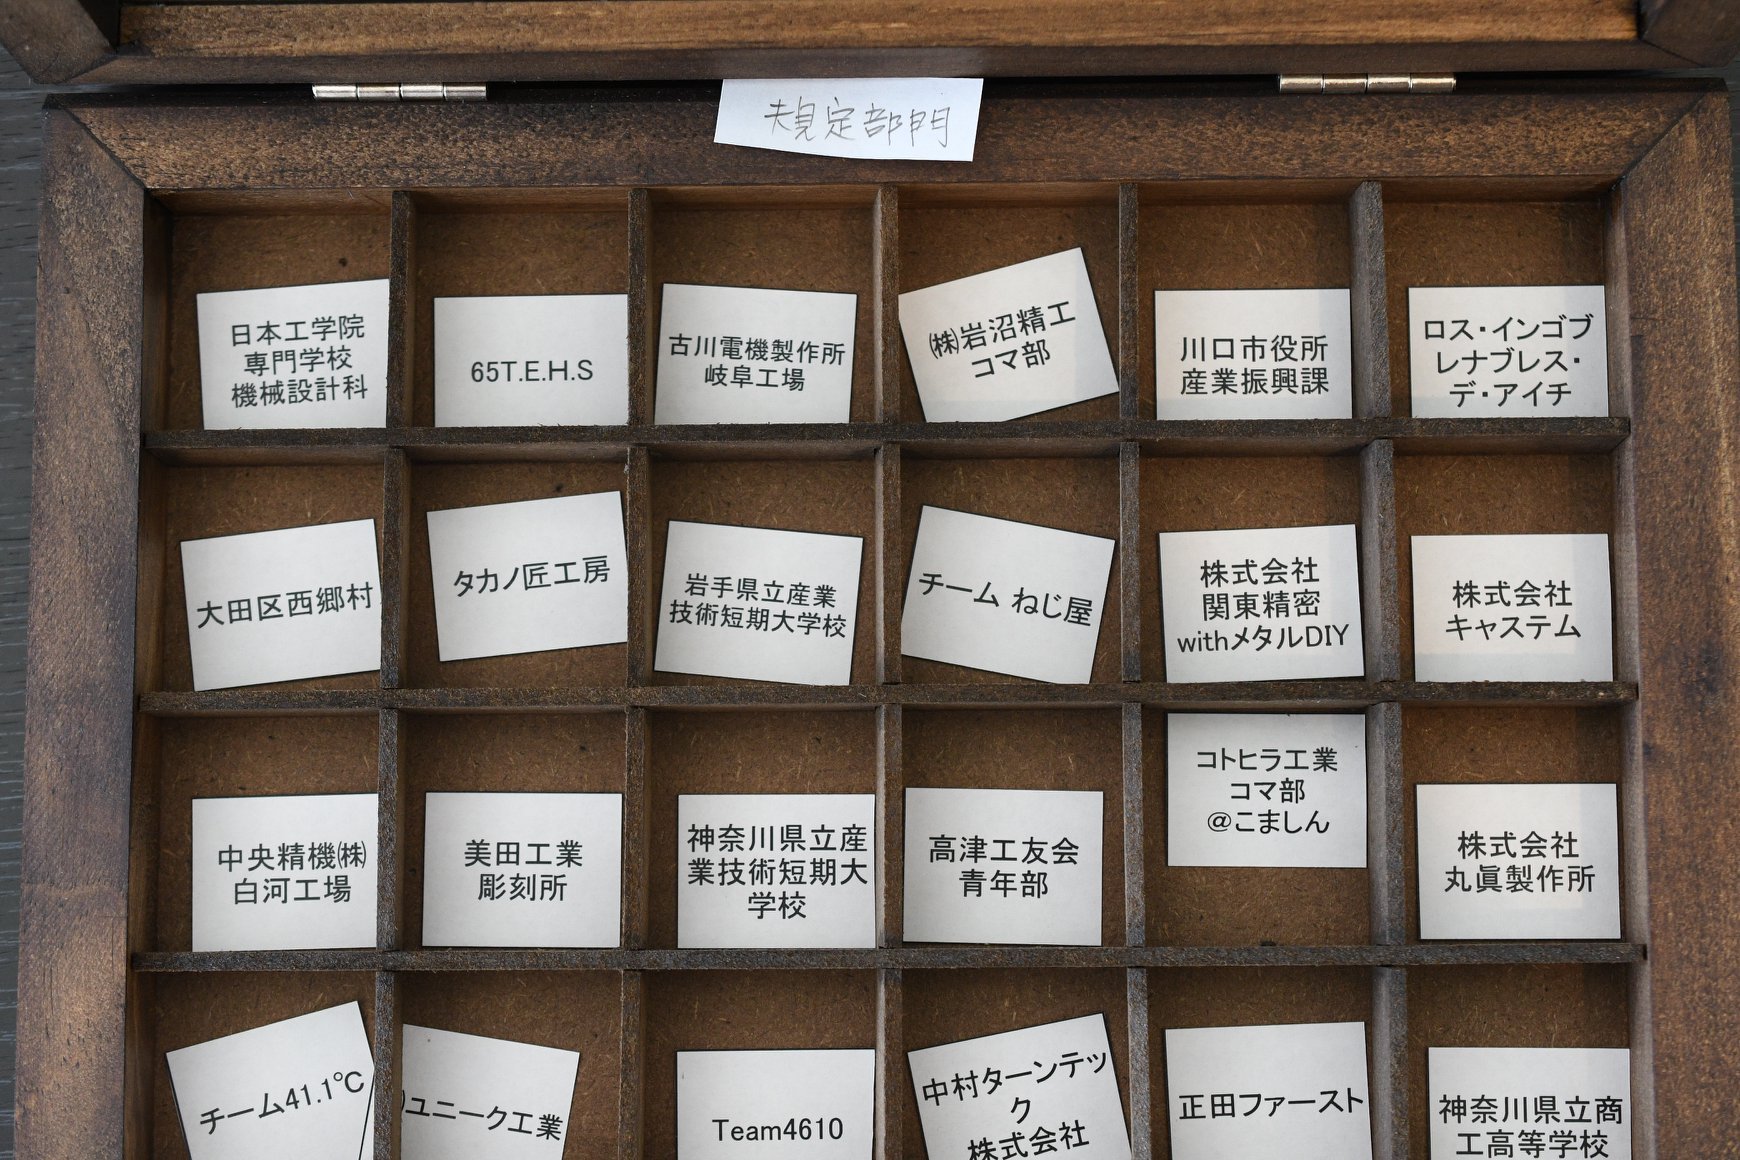 規定部門
日本工学院
専門学校
機械設計科
65T.E.H.S
古川電機製作所
岐阜工場
㈱岩沼精工
コマ部
川口市役所
産業振興課
ロス・インゴブ
レナブレス・
デ・アイチ
大田区西郷村
タカノ匠工房
岩手県立産業
技術短期大学校
チーム ねじ屋
株式会社
関東精密
withメタルDIY
株式会社
キャステム
中央精機㈱
白河工場
美田工業
彫刻所
神奈川県立産
業技術短期大
学校
高津工友会
青年部
コトヒラ工業
コマ部
@こましん
株式会社
丸眞製作所
チーム41.1℃
ユニーク工業
Team4610
中村ターンテッ
ク
株式会社
正田ファースト
神奈川県立商
工高等学校